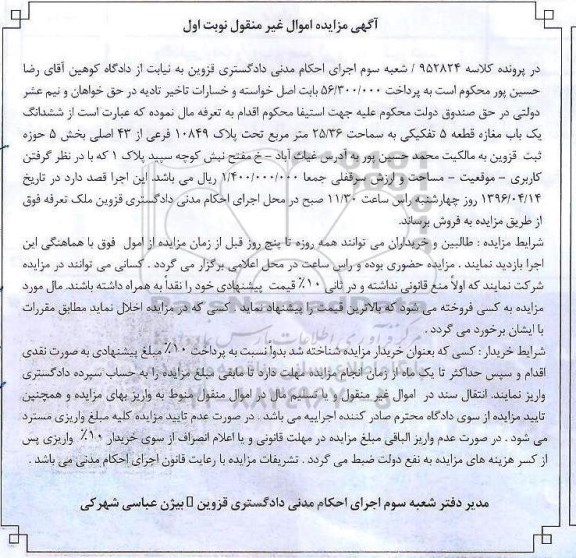 آگهی مزایده اموال غیر منقول نوبت اول
در پرونده کلاسه ۹۵۲۸۲۴ / شعبه سوم اجرای احکام مدنی دادگستری قزوین به نیابت از دادگاه کوهین آقای رضا
حسین پور محکوم است به پرداخت ۵۶/۳۰۰/۰۰۰ بابت اصل خواسته و خسارات تاخیر تادیه در حق خواهان و نیم عشر
دولتی در حق صندوق دولت محکوم علیه جهت استیفا محکوم اقدام به تعرفه مال نموده که عبارت است از ششدانگ
یک باب مغازه قطعه ۵ تفکیکی به سماحت ۲۵/۳۶ متر مربع تحت پلاک ۱۰۸۴۹ فرعی از ۴۳ اصلی بخش ۵ حوزه
ثبت قزوین به مالکیت محمد حسین پور و آدرس غیاث آباد – خ مفتح نبش کوچه سپید پلاک ۱ که با در نظر گرفتن
کاربری – موقعیت – مساحت و ارزش سرقفلی جمعا ۱/۴۰۰/۰۰۰/۰۰۰ ریال می باشد. این اجرا قصد دارد در تاریخ
۱۳۹۶/۰۴/۱۴ روز چهارشنبه راس ساعت ۱۱/۳۰ صبح در محل اجرای احکام مدنی دادگستری قزوین ملک تعرفه فوق
از طریق مزایده به فروش برساند.
شرایط مزایده : طالبین و خریداران می توانند همه روزه تا پنج روز قبل از زمان مزایده از امول فوق با هماهنگی این
اجرا بازدید نمایند . مزایده حضوری بوده و راس ساعت در محل اعلامی برگزار می گردد . کسانی می توانند در مزایده
شرکت نمایند که اولاً منع قانونی نداشته و در ثانی ۱۰٪ قیمت پیشنهادی خود را نقداً به همراه داشته باشند. مال مورد
مزایده به کسی فروخته می شود که بالاترین قیمت را پیشنهاد نماید . کسی که در مزایده اخلال نماید مطابق مقررات
با ایشان برخورد می گردد .
شرایط خریدار : کسی که بعنوان خریدار مزایده شناخته شد بدوا نسبت به پرداخت ۱۰٪ مبلغ پیشنهادی به صورت نقدی
اقدام و سپس حداکثر تا یک ماه از زمان انجام مزایده مهلت دارد تا مابقی مبلغ مزایده را به حساب سپرده دادگستری
واریز نمایند. انتقال سند در اموال غیر منقول و یا تسلیم مال در اموال منقول منوط به واریز بهای مزایده و همچنین
تایید مزایده از سوی دادگاه محترم صادر کننده اجراییه می باشد . در صورت عدم تایید مزایده کلیه مبلغ واریزی مسترد
می شود . در صورت عدم واریز الباقی مبلغ مزایده در مهلت قانونی و یا اعلام انصراف از سوی خریدار ۱۰٪ واریزی پس
از کسر هزینه های مزایده به نفع دولت ضبط می گردد . تشریفات مزایده با رعایت قانون اجرای احکام مدنی می باشد .
مدیر دفتر شعبه سوم اجرای احکام مدنی دادگستری قزوین ▯ بیژن عباسی شهرکی